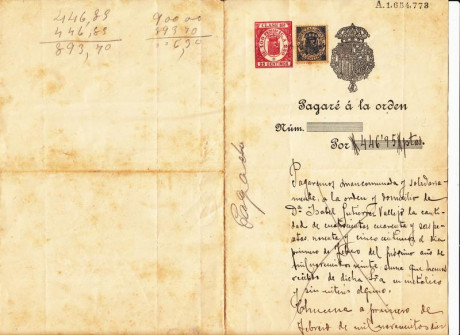 446,85
446,85
893,70
900 00
893 70
6,30
A.1.654.773
CLASE 10ª
25 CENTIMOS
Pagaré á la orden
Núm.
Por #446'95# ptas.
Pagado
Pagaremos mancomunada y solidaria-
mente, a la orden y domicilio de
Dª Isabel Gutierrez Vallejo la canti-
dad de cuatrocientas cuarenta y seis pe-
setas noventa y cinco centimos el dia
primero de Febrero del próximo año de
mil novecientos veinte, suma que hemos
recibido de dicha Sra en metálico
y sin interés alguno.
Chucena a primero de
febrero de mil novecientos diez